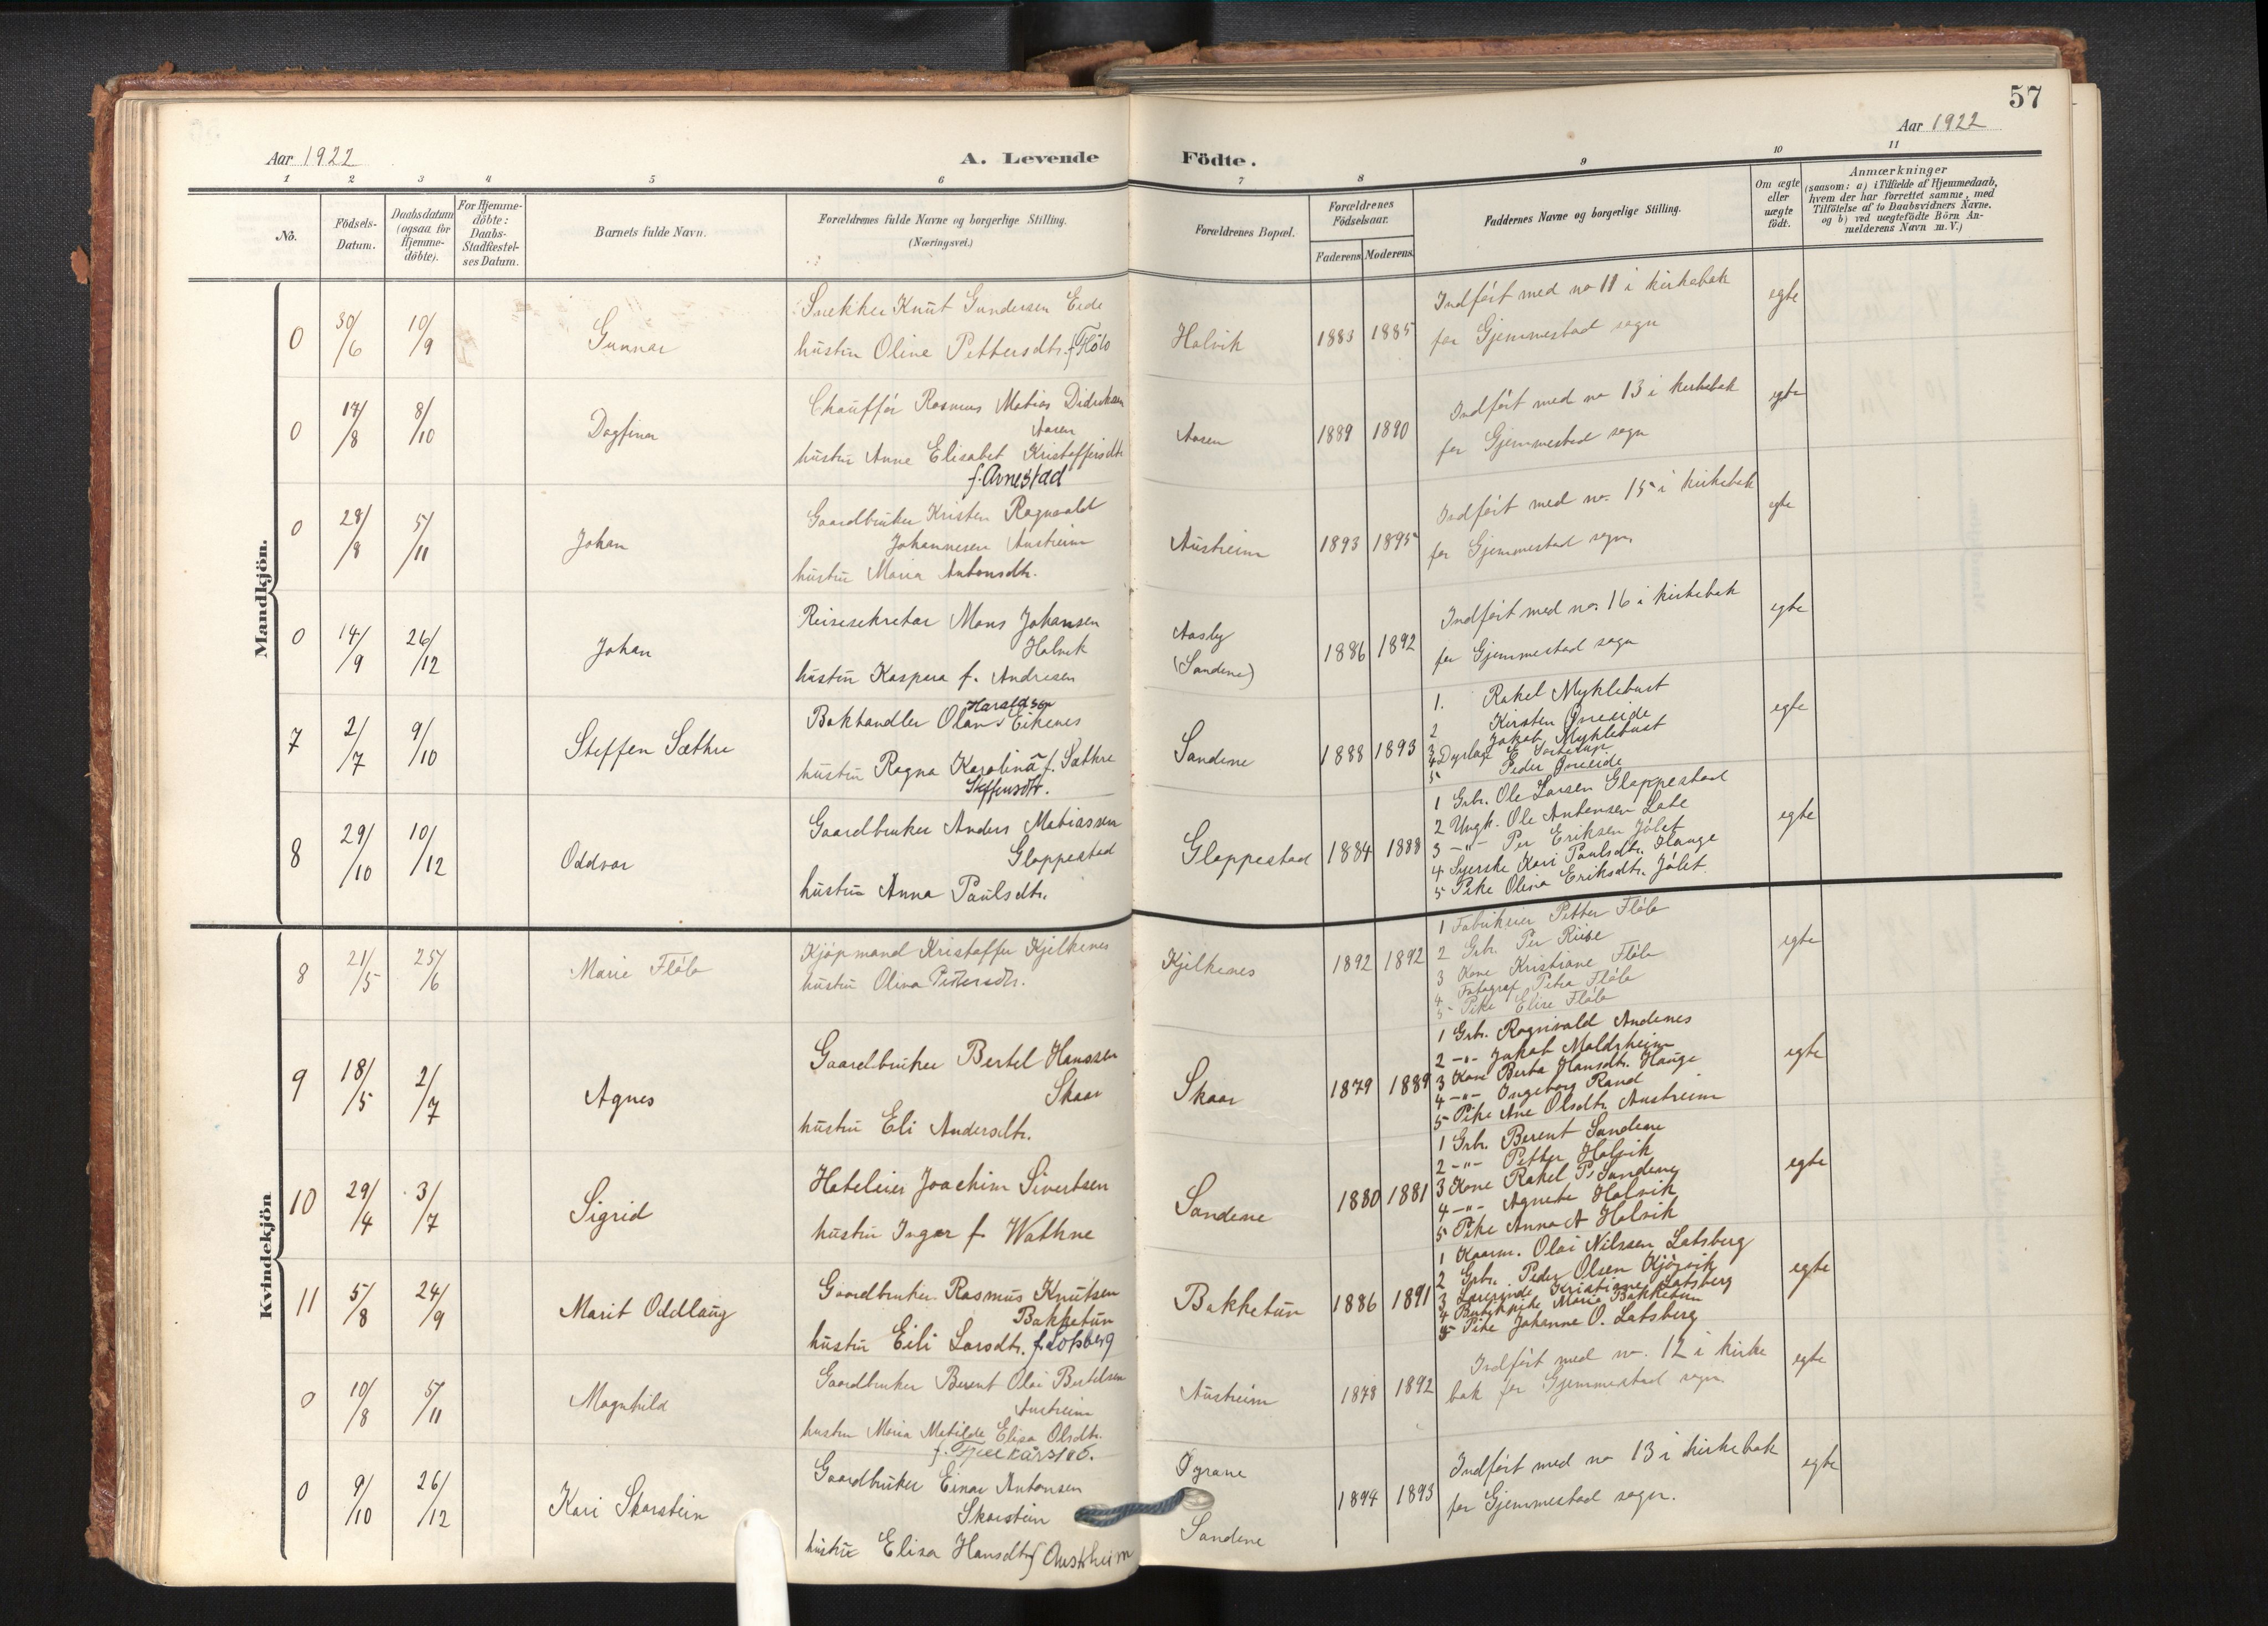 57
Aar 1922
A. Levende
Födte.
Aar 1922
1 2 3 4 5 6 7 8 9 10 11
No.
Födsels-
Datum.
Daabsdatum
(ogsaa for
Hjemme-
döbte).
For Hjemme-
döbte:
Daabs-
Stadfæstel-
ses Datum.
Barnets fulde Navn.
Forældrenes fulde Navne og borgerlige Stilling.
(Næringsvei.)
Forældrenes Bopæl.
Forældrenes
Födselsaar.
Faderens. Moderens.
Faddernes Navne og borgerlige Stilling.
Om ægte
eller
uægte
födt.
Anmærkninger
(saasom: a) i Tilfælde af Hjemmedaab,
hvem der har forrettet samme, med
Tilföielse af to Daabsvidners Navne.
og b) ved uægtefödte Börn An-
melderens Navn m.V.)
Mandkjön.
0 30/6 10/9 Gunnar
Snekker Knut Gundersen Eide
hustru Oline Pettersdtr. f Flölo
Holvik 1883 1885
Indfört med no 11 i kirkebok
for Gjemmestad sogn
egte
0 17/8 8/10 Dagfinn
Chaufför Rasmus Matias Didriksen
Aasen
hustru Anne Elisabet Kristoffersdtr
f. Arnestad
Aasen 1889 1890
Indfört med no 13 i kirkebok
for Gjemmestad sogn
egte
0 28/8 5/11 Johan
Gaardbruker Kristen Ragnvald
Johannesen Austreim
hustru Maria Antonsdtr.
Austreim 1893 1895
Indfört med no. 15 i kirkebok
for Gjemmestad sogn.
egte
0 14/9 26/12 Johan
Reisesekretær Mons Johansen
Holvik
hustru Kaspara f. Andresen
Aasly
(Sandene)
1886 1892
Indfört med no. 16 i kirkebok
for Gjemmestad sogn
egte
7 2/7 9/10 Steffen Sæthre
Haraldson
Bokhandler Olan Eikenes
hustru Ragna Karolina f. Sæthre
Steffensdtr.
Sandene 1888 1893
1. Rakel Myklebust
2 Kirsten
3 Jakob Myklebust
4 Dyrlæge
5 Peder
egte
8 29/10 10/12 Oddvar
Gaardbruker Anders Matiassen
Gloppestad
hustru Anna Paulsdtr.
Gloppestad 1884 1888
1 Grbr. Ole Larsen Gloppestad
2 Ungk. Ole Antonsen Lote
3 -"- Per Eriksen Jólet
4 Syerske Kari Paulsdtr. Hauge
5 Pike Olina Eriksdtr. Jólet.
egte
Kvindekjön
8 21/5 25/6 Marie Flölo
Kjöpmand Kristoffer Kjelkenes
hustru Olina Pettersdtr.
Kjelkenes 1892 1892
1 Fabrikeier Petter Flölo
2 Grbr. Per Riise
3 Kone Kristiane Flölo
4 Fotograf Petra Flölo
5 Pike Elise Flölo
egte
9 18/5 2/7 Agnes
Gaardbruker Bertel Hanssen
Skaar
hustru Eli Andersdtr.
Skaar 1879 1889
1 Grbr. Ragnvald Andenes
2 -"- Jakob Moldrheim
3 Kone Berta Hansdtr. Hauge
4 -"- Ingeborg Rand
5 Pike Ane Olsdtr. Austreim
egte
10 29/4 3/7 Sigrid
Hoteleier Joachim Sivertsen
hustru Inger f. Wathne
Sandene 1880 1881
1 Grbr. Berent Sandene
2 -"- Petter Holvik
3 Kone Rakel P. Sandene
4 -"- Agnete Holvik
5 Pike Anna A Holvik
egte
11 5/8 24/9 Marit Oddlaug
Gaardbruker Rasmus Knutsen
Bakketun
hustru Eili Larsdtr. f. Lotsberg
Bakketun 1886 1891
1 Kaarm. Olai Nilssen Lotsberg
2 Grbr. Peder Olsen Kjösvik
3 Lærerinde Kristiane Lotsberg
4 Butikpike Marie Bakketun
5 Pike Johanne O. Lotsberg
egte
0 10/8 5/11 Magnhild
Gaardbruker Berent Olai Bertelsen
Austreim
hustru Maria Matilde Elisa Olsdtr.
f. Fjellkårstad.
Austreim 1878 1892
Indfört med no. 12 i kirke
bok for Gjemmestad sogn.
egte
0 9/10 26/12 Kari Skarstein
Gaardbruker Einar Antonsen
Skarstein
hustru Elisa Hansdtr f Austrheim
Öyrane
Sandene
1894 1893
Indfört med no 13 i kirkebok
for Gjemmestad sogn.
egte